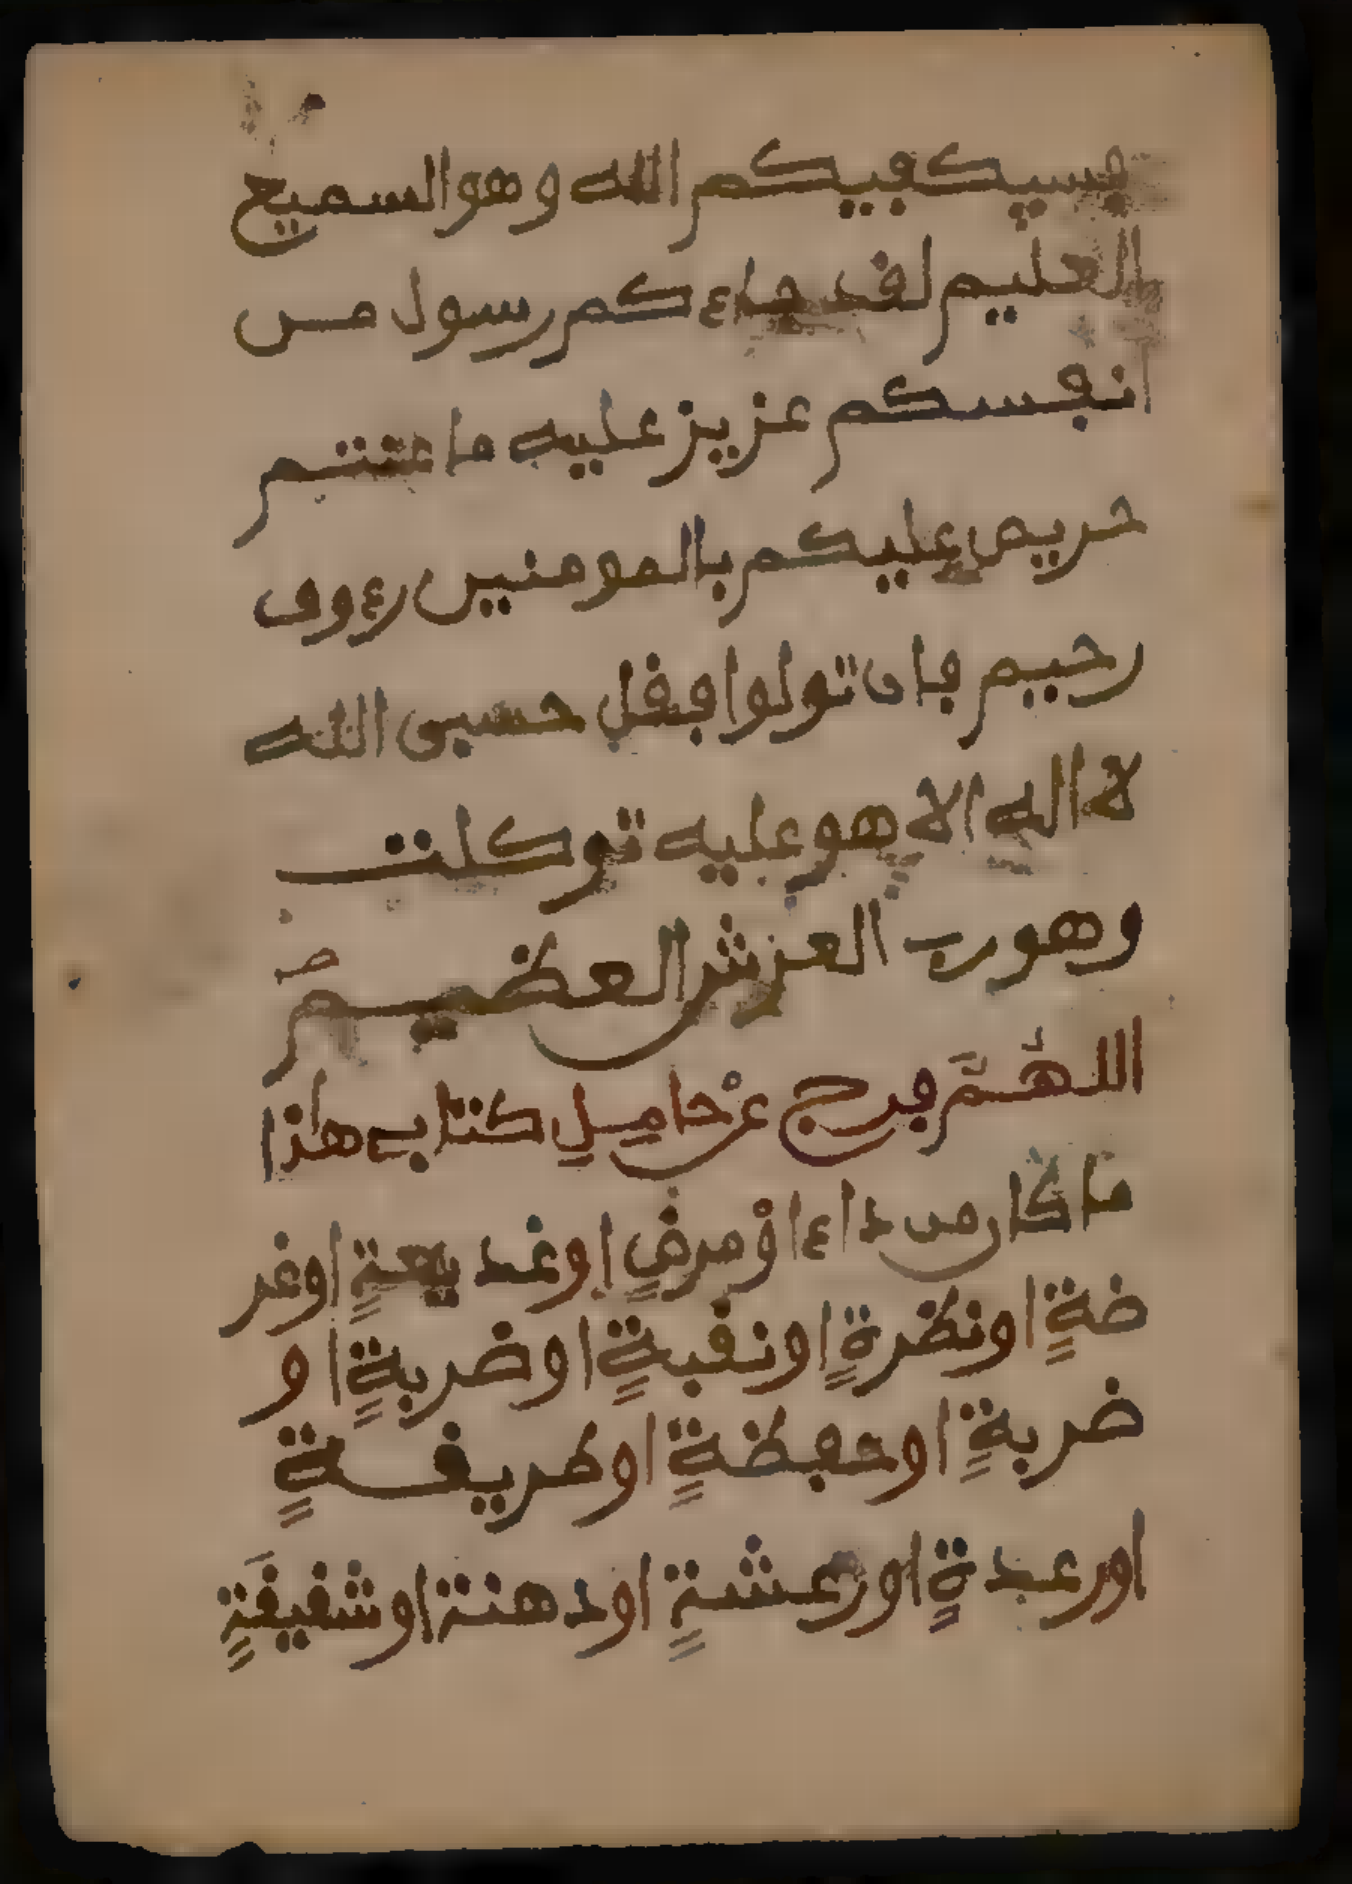 فسيكفيكم الله وهو السميع
العليم لقد جاءكم رسول من
انفسكم عزيز عليه ما عنتم
حريص عليكم بالمومنين رءوف
رحيم فان تولوا فقل حسبي الله
لا اله الا هو عليه توكلت
وهو رب العرش العظيم
اللهم فرج عن حامل كتابي هاذا
ما كان من داء او مرض او غد يعة او غر
ضة او نظرة او نقبة او ضربة او
ضربة او حفظة او طريفة
او رعدة او رعشة او دهنة او شقيقة